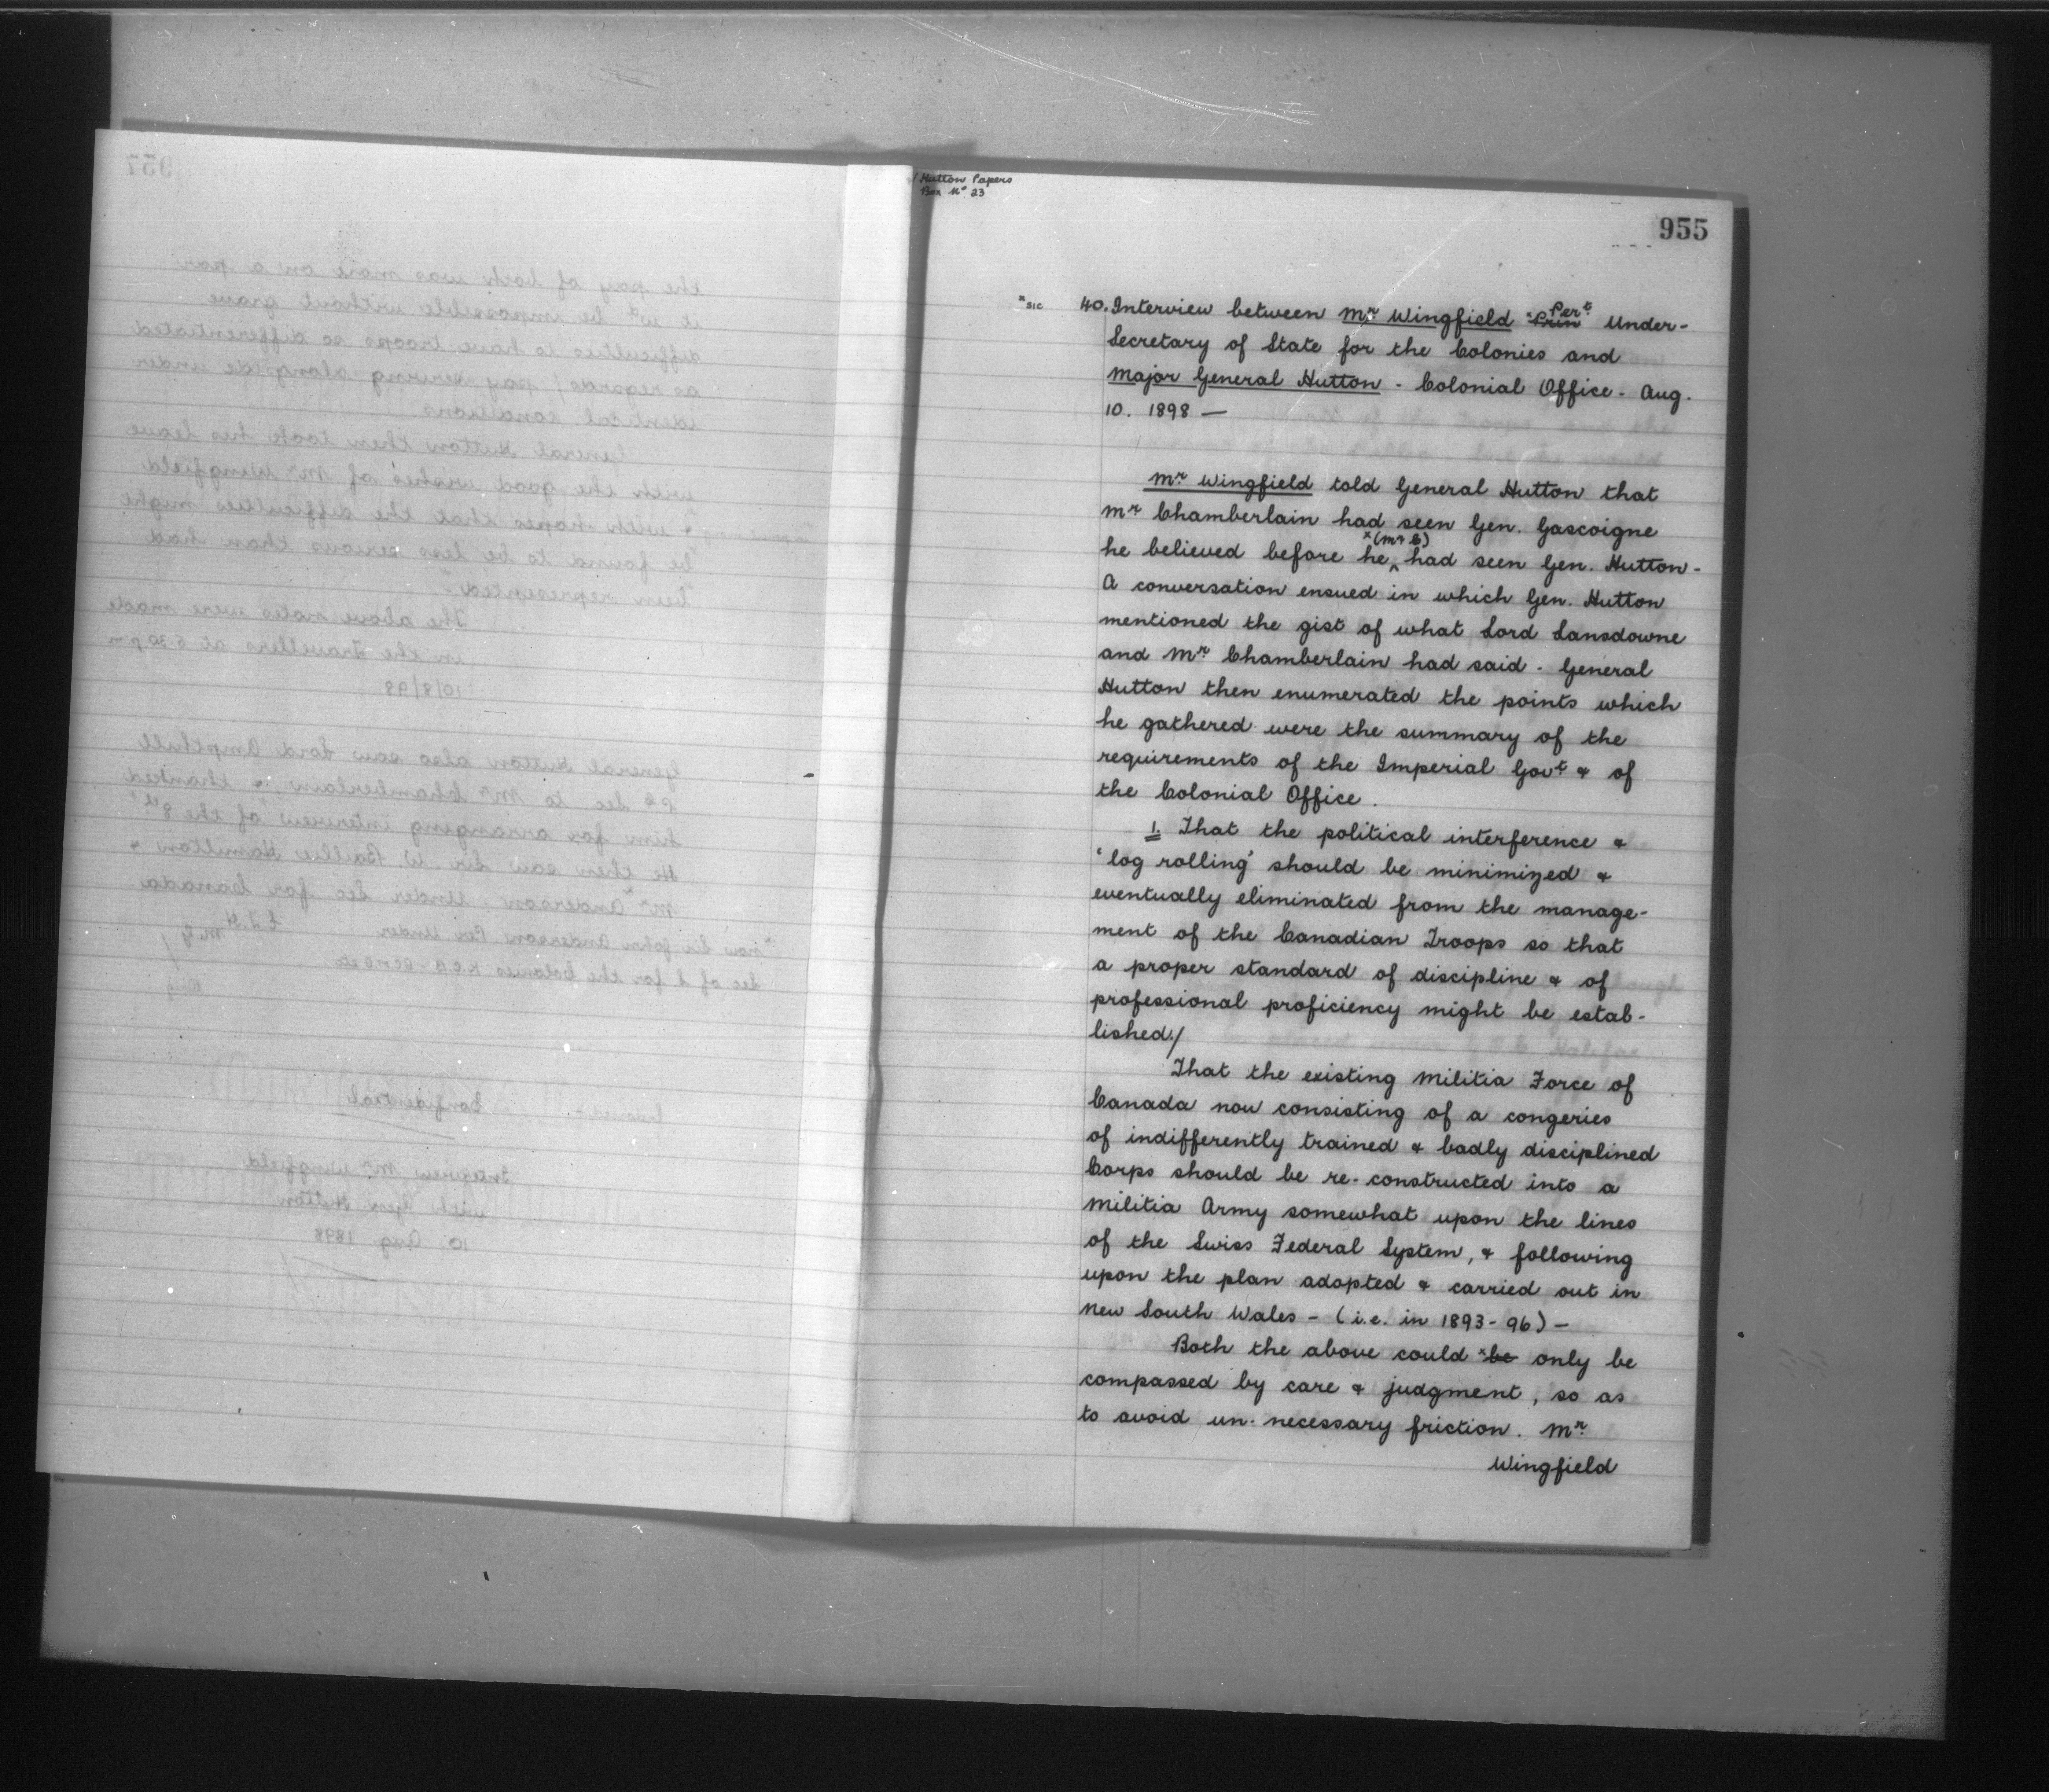 Hutton Papers
Box No 23
955
x sic
40. Interview between Mr Wingfield x Prin Pert Under-
Secretary of State for the Colonies and
Major General Hutton - Colonial Office - Aug.
10. 1898 —
Mr Wingfield told General Hutton that
Mr Chamberlain had seen Gen. Gascoigne
he believed before he x(Mr C) had seen Gen. Hutton -
A conversation ensued in which Gen. Hutton
mentioned the gist of what Lord Lansdowne
and Mr Chamberlain had said - General
Hutton then enumerated the points which
he gathered were the summary of the
requirements of the Imperial Govt & of
the Colonial Office.
1. That the political interference &
'log rolling' should be minimized &
eventually eliminated from the manage-
ment of the Canadian Troops so that
a proper standard of discipline & of
professional proficiency might be estab-
lished./
That the existing Militia Force of
Canada now consisting of a congeries
of indifferently trained & badly disciplined
Corps should be re-constructed into a
Militia Army somewhat upon the lines
of the Swiss Federal System, & following
upon the plan adopted & carried out in
New South Wales - (i.e. in 1893-96) -
Both the above could x be only be
compassed by care & judgment, so as
to avoid un-necessary friction. Mr
Wingfield